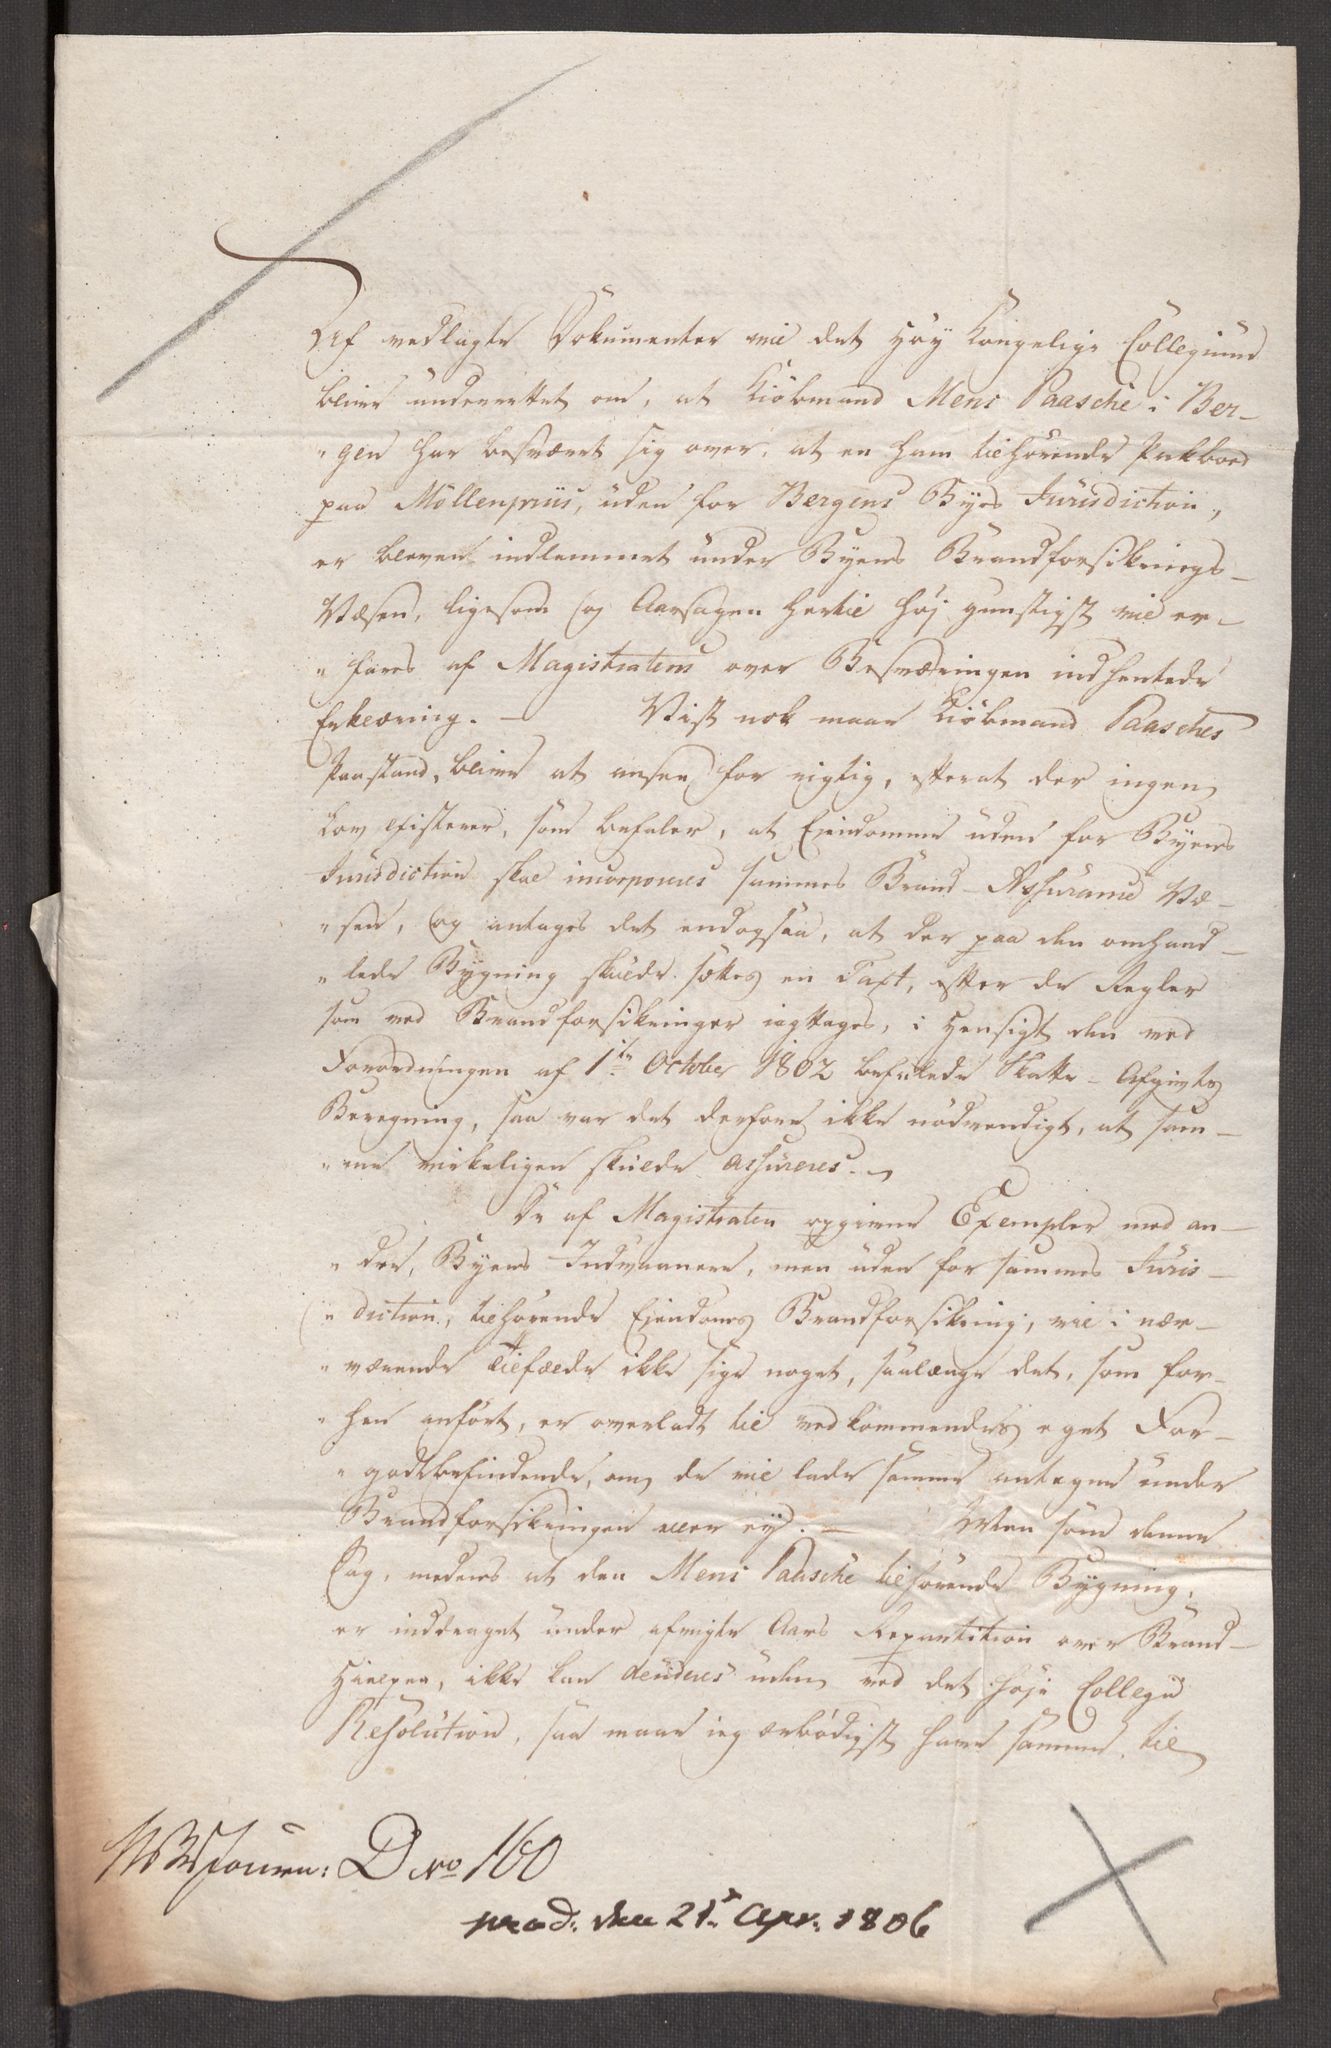 Af vedlagte Dokumenter vil det Høy Kongelige Collegium
blive underrettet om, at Kiöbmand Mens Paasche i Ber-
"gen har besværet sig over, at en ham tilhörende Pakboed
paa Möllenpriis, uden for Bergens Byes Jurisdiction,
er bleven indlemmet under Byens Brandforsikrings-
Væsen, ligesom og Aarsagen hertil høj gunstigst vil er-
"fares af Magistratens over Besværingen indhentede
Erklæring. — Vist nok maae Kiöbmand Paasches
Paastand, blive at ansee for rigtig, efterat der ingen
Lov existerer, som befaler, at Eiendomme uden for Byens
Jurisdiction skal incorporeres sammes Brand-Assurance Væ-
"sen, og antages det endogsaa, at der paa den omhand-
"lede Bygning skulde sættes en Taxt, efter de Regler
som ved Brandforsikringer iagttages, i Hensigt den ved
Forordningen af 1te October 1802 befalede Skatte-Afgivts
Beregning, saa var det derfore ikke nödvendigt, at sam-
"me virkeligen skulde assureres. —
De af Magistraten opgivne Exempler med an-
"dre, Byens Indvaanere, men uden for sammes Juris-
"diction, tilhörende Eiendoms Brandforsikring, vil i nær-
"værende Tilfælde ikke sige noget, saalænge det, som for-
"hen anfört, er overladt til vedkommendes eget For-
"godtbefindende, om de vil lade samme antegne under
Brandforsikringen eller ey. — Men som denne
Sag, medens at den Mens Paasche tilhörende Bygning,
er inddraget under afvigte Aars Repartition over Brand-
Hielpen, ikke kan decideres uden ved det høje Collegii
Resolution, saa maae ieg ærbödigst have samme til
Journ: D No 160
prod: den 21de Apr: 1806